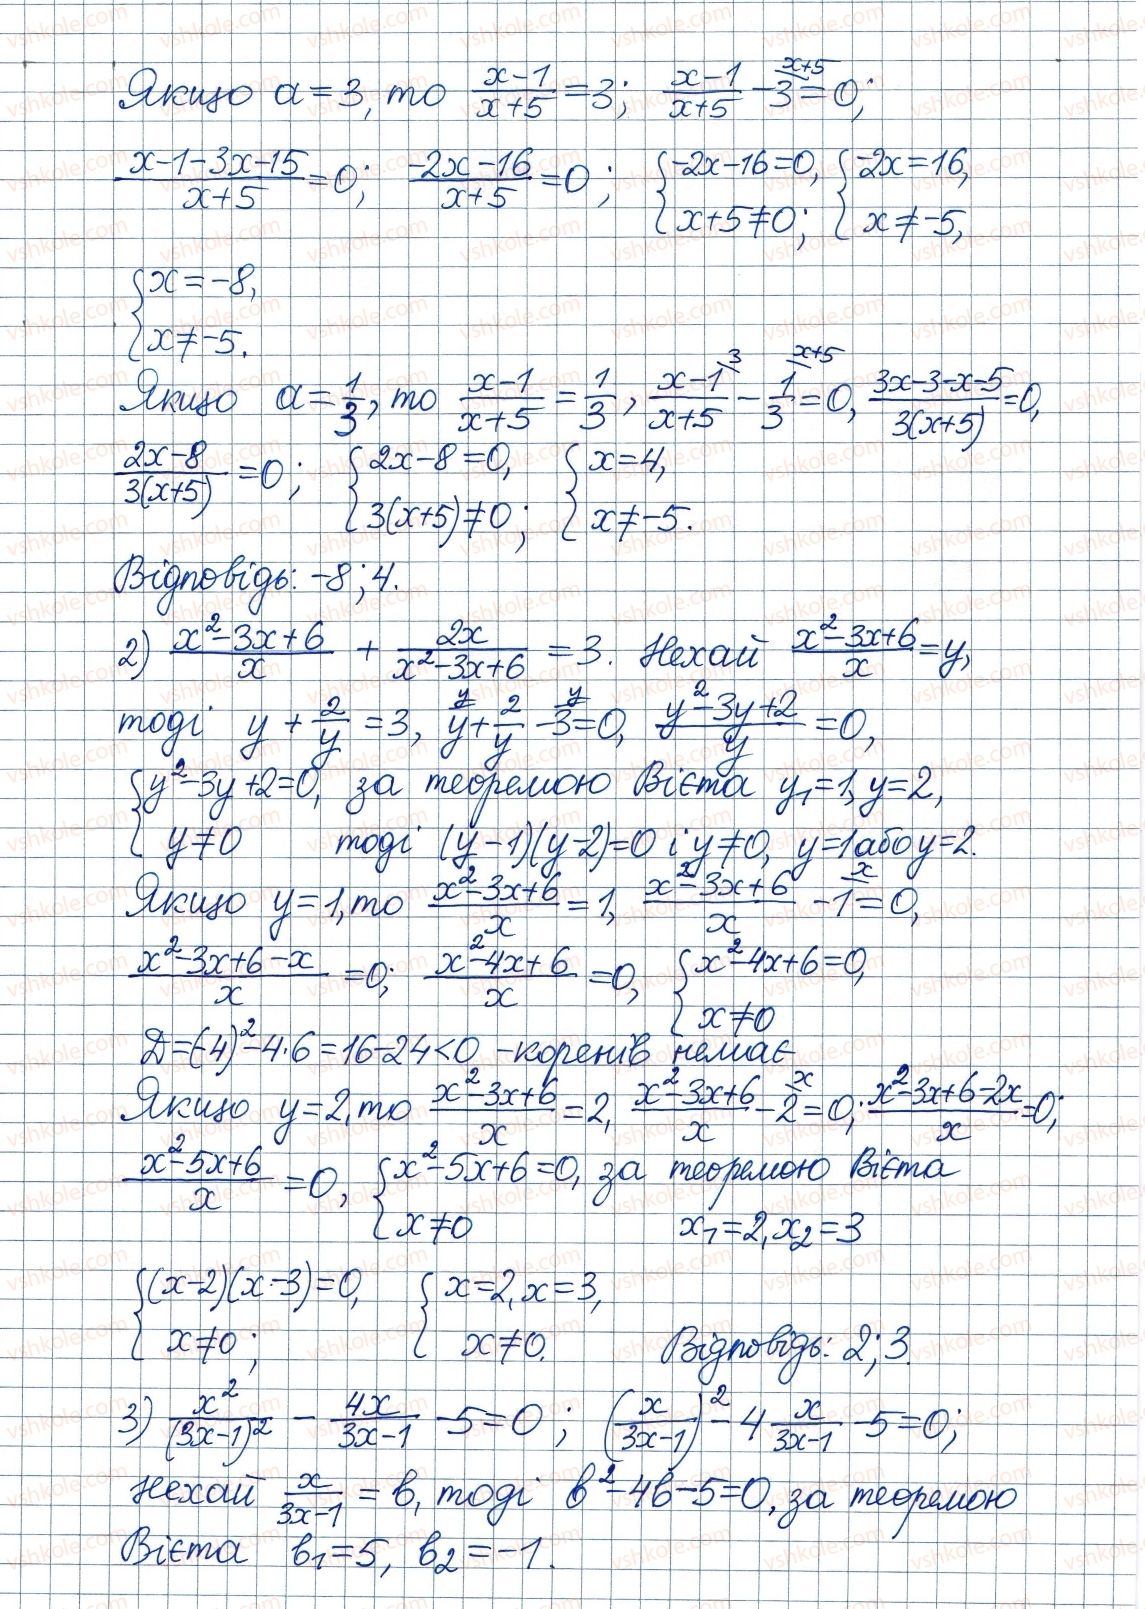 Якщо a=3, то (x-1)/(x+5)=3; (x-1)/(x+5) - 3^(x+5)=0;
(x-1-3x-15)/(x+5)=0; (-2x-16)/(x+5)=0; {-2x-16=0, x+5≠0; {-2x=16, x≠-5,
{x=-8, x≠-5.
Якщо a=1/3, то (x-1)/(x+5)=1/3, (x-1)/(x+5)^3 - 1/3^(x+5)=0, (3x-3-x-5)/(3(x+5))=0,
(2x-8)/(3(x+5))=0; {2x-8=0, 3(x+5)≠0; {x=4, x≠-5.
Відповідь: -8; 4.
2) (x²-3x+6)/x + 2x/(x²-3x+6) = 3. Нехай (x²-3x+6)/x=y,
тоді y+2/y=3, y^y+2/y-3^y=0, (y²-3y+2)/y=0,
{y²-3y+2=0, y≠0 за теоремою Вієта y₁=1, y=2,
тоді (y-1)(y-2)=0 і y≠0, y=1 або y=2.
Якщо y=1, то (x²-3x+6)/x=1, (x²-3x+6)/x - 1^x=0,
(x²-3x+6-x)/x=0; (x²-4x+6)/x=0, {x²-4x+6=0, x≠0
Д=(-4)²-4·6=16-24<0 -коренів немає
Якщо y=2, то (x²-3x+6)/x=2, (x²-3x+6)/x - 2^x=0; (x²-3x+6-2x)/x=0;
(x²-5x+6)/x=0, {x²-5x+6=0, x≠0 за теоремою Вієта
x₁=2, x₂=3
{(x-2)(x-3)=0, x≠0; {x=2, x=3, x≠0. Відповідь: 2; 3.
3) x²/(3x-1)² - 4x/(3x-1) - 5=0; (x/(3x-1))² - 4 x/(3x-1) - 5=0;
Нехай x/(3x-1) = в, тоді в²-4в-5=0, за теоремою
Вієта в₁=5, в₂=-1.
vshkole.com